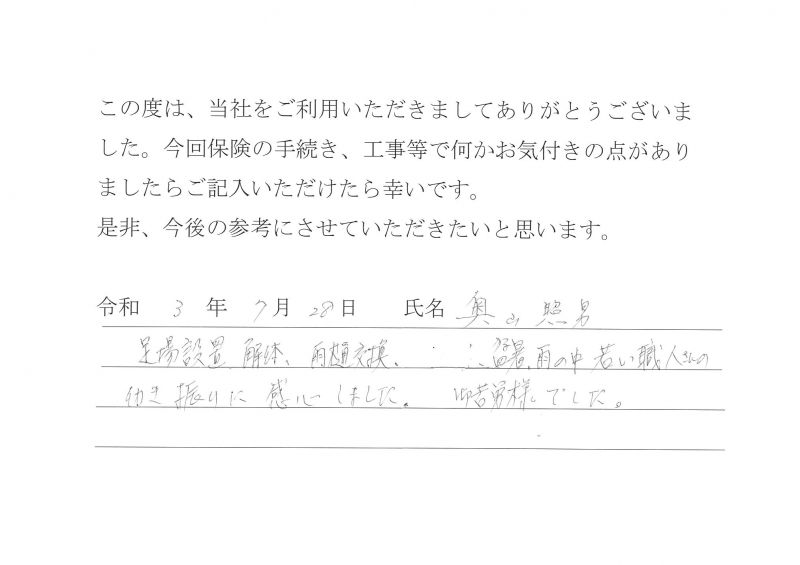 この度は、当社をご利用いただきましてありがとうございま
した。今回保険の手続き、工事等で何かお気付きの点があり
ましたらご記入いただけたら幸いです。
是非、今後の参考にさせていただきたいと思います。
令和 3 年 7 月 28 日 氏名 奥山 照男
足場設置 解体、雨樋交換、 猛暑、雨の中 若い職人さんの
仂き振りに 感心しました。 御苦労様でした。